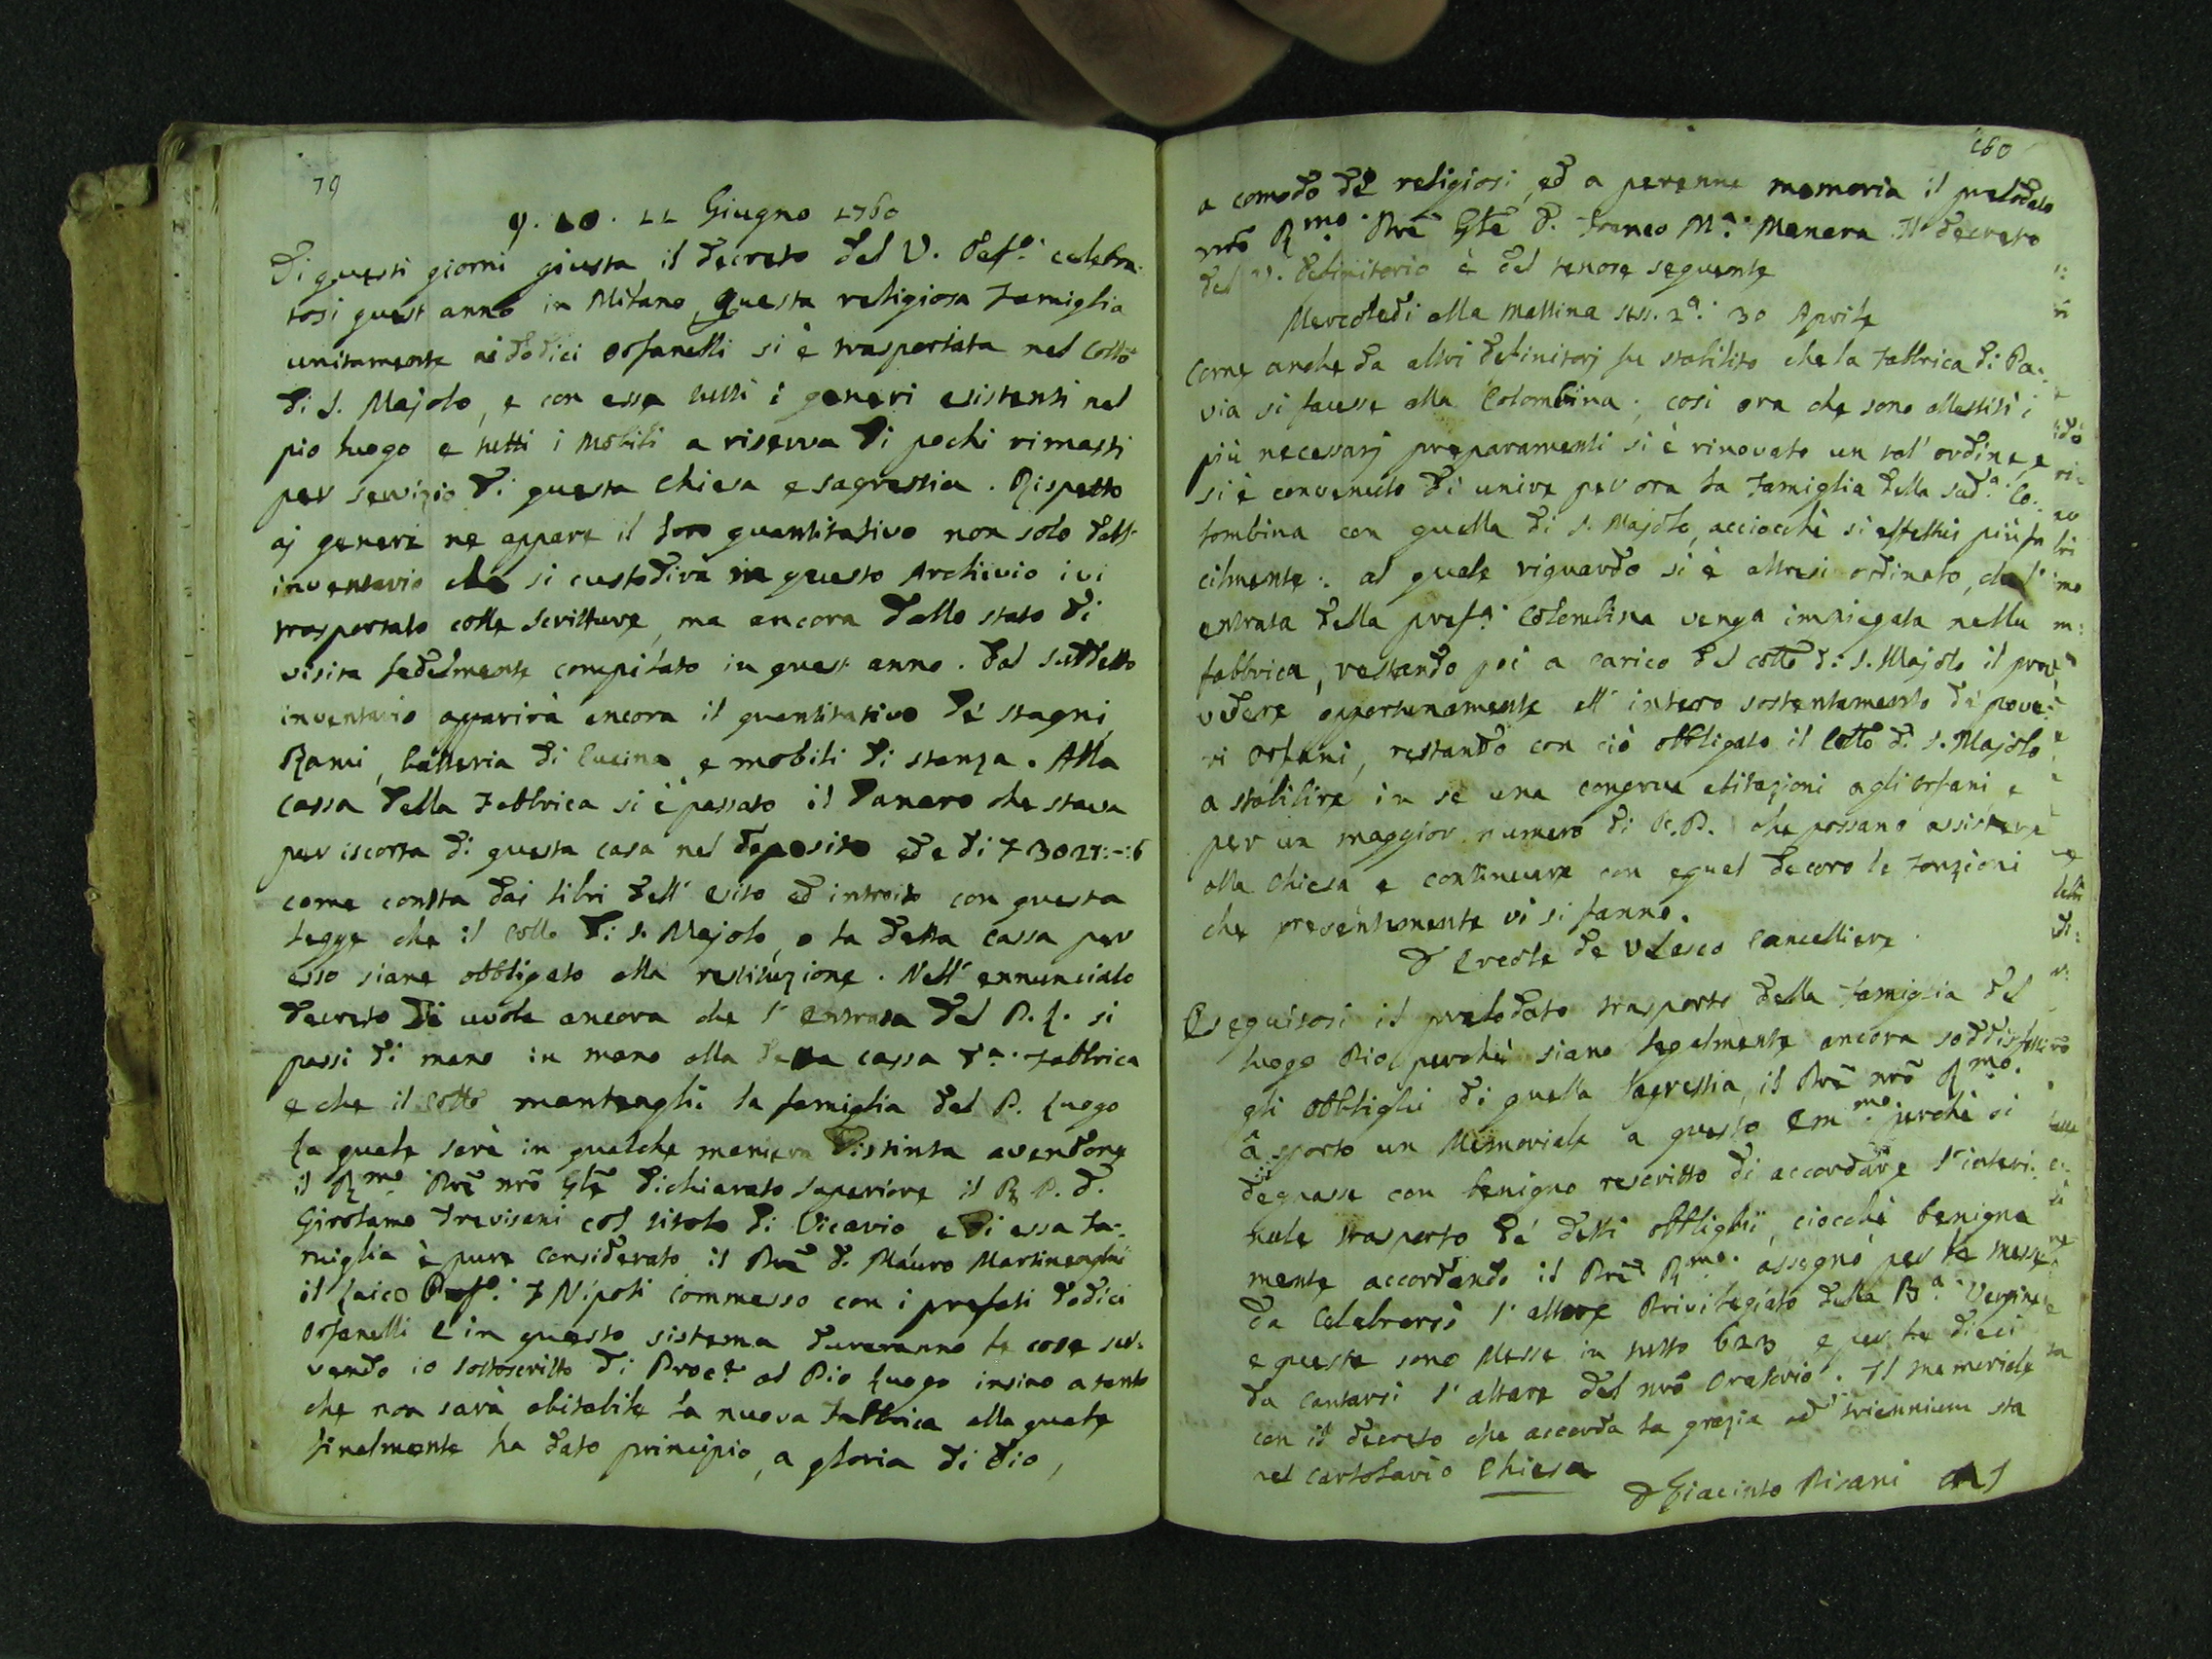 79
9. 10. 11 Giugno 1760
Di questi giorni giusta il decreto del V. Defo. celebra-
tosi quest anno in Milano, questa religiosa Famiglia
unitamente ai dodici orfanelli si è trasportata nel Collo
di S. Majolo, e con essa tutti i generi esistenti nel
pio luogo e tutti i mobili a riserva di pochi rimasti
per servizio di questa Chiesa e sagrestia. Rispetto
aj generi ne appare il loro quantitativo non solo dall'
inventario che si custodirà in questo Archivio ivi
trasportato colle scritture, ma ancora dallo stato di
visita fedelmente compilato in quest anno. Dal suddetto
inventario apparirà ancora il quantitativo de' stagni
Rami, batteria di Cucina, e mobili di stanza. Alla
Cassa della Fabbrica si è passato il Danaro che stava
per iscorta di questa casa nel deposito ed è di £ 3021:-:6
come consta dai libri dell' esito ed introito con questa
legge che il Collo di S. Majolo, o la detta Cassa per
esso siane obbligato alla restituzione. Nell' ennunciato
decreto si vuole ancora che l' Entrata del P. L. si
passi di mano in mano alla detta cassa da. Fabbrica
e che il Collo mantenghi la famiglia del P. Luogo
la quale sarà in qualche maniera distinta avendone
il Rmo. Pre nro Gle dichiarato superiore il R. P. D.
Girolamo Trevisani col titolo di Vicario, e di essa fa-
miglia è pure considerato il Pre D. Mauro Martinenghi
il Laico Profo. F Nipoti Commesso con i prefati dodici
Orfanelli e in questo sistema dureranno le cose ser-
vendo io sottoscritto di Proce. al Pio Luogo insino a tanto
che non sarà abitabile la nuova fabbrica alla quale
finalmente ha dato principio, a gloria di Dio,
160
a comodo de' religiosi, ed a perenne memoria il prelodato
nro Rmo. Pre Gle D. Franco Ma. Manera. Il decreto
del V. definitorio è del tenore seguente
Mercoledi alla mattina sess. 2a. 30 Aprile
Come anche da altri definitorj fu stabilito che la Fabbrica di Pa-
via si facesse alla Colombina; così ora che sono allestiti i
più necessarj preparamenti si è rinovato un tal' ordine, e
si è convenuto di unire per ora la Famiglia della suda. Co-
lombina con quella di S. Majolo, acciocchè si effettui più fa
cilmente: al quale riguardo si è altresi ordinato, che l'
entrata della prefa. Colombina venga impiegata nella
fabbrica, restando poi a carico del Collo di S. Majolo il prov
vedere opportunamente all' intero sostentamento de' pove-
ri orfani, restando con ciò obbligato il Collo di S. Majolo
a stabilire in se una congrue abitazioni agli orfani, e
per un maggior numero di P.P. che possano assistere
alla Chiesa e continuare con egual decoro le fonzioni
che presentemente vi si fanno.
D Ercole de Velasco Cancelliere
Eseguitosi il prelodato trasporto della famiglia del
luogo Pio, perchè siano legalmente ancora soddisfatti
gli obblighi di quella sagrestia, il Pre nro Rmo.
à sporto un Memoriale a questo Emmo. perchè si
degnasse con benigno rescritto di accordare l' interi-
nale trasporto de' detti obblighi, ciocchè benigna
mente accordando il Pre Rmo. assegnò per le messe
da Celebrarsi l' altare Privilegiato della Ba. Vergine
e queste sono Messe in tutto 623 e per le dieci
da Cantarsi l' altare del nro Oratorio. Il memoriale
con il decreto che accorda la grazia ad triennium sta
nel Cartolario Chiesa
D Giacinto Pisani